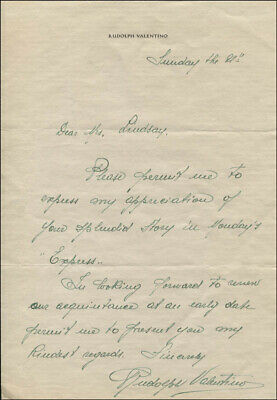 RUDOLPH VALENTINO
Sunday the 21st
Dear Mrs. Lindsay,
Please permit me to
express my appreciation of
your splendid story in Monday's
"Express".
In looking forward to renew
our acquintance at an early date
permit me to present you my
kindest regards. Sincerely
Rudolph Valentino